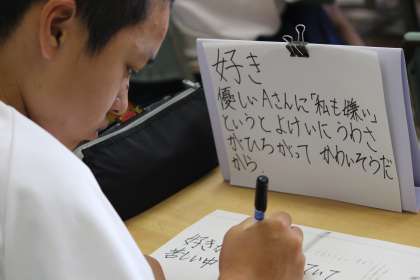 好き
優しいAさんに「私も嫌い」
というとよけいにうわさ
がひろがって かわいそうだ
から